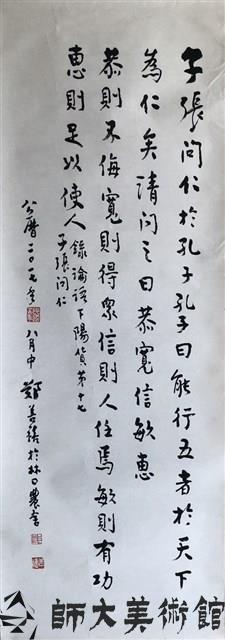 子張問仁於孔子孔子曰能行五者於天下
為仁矣請問之曰恭寬信敏惠
恭則不侮寬則得眾信則人任焉敏則有功
惠則足以使人 錄論語下陽貨第十七
子張問仁
公曆二〇一九年八月中 鄭善禧於林口農舍
師大美術館